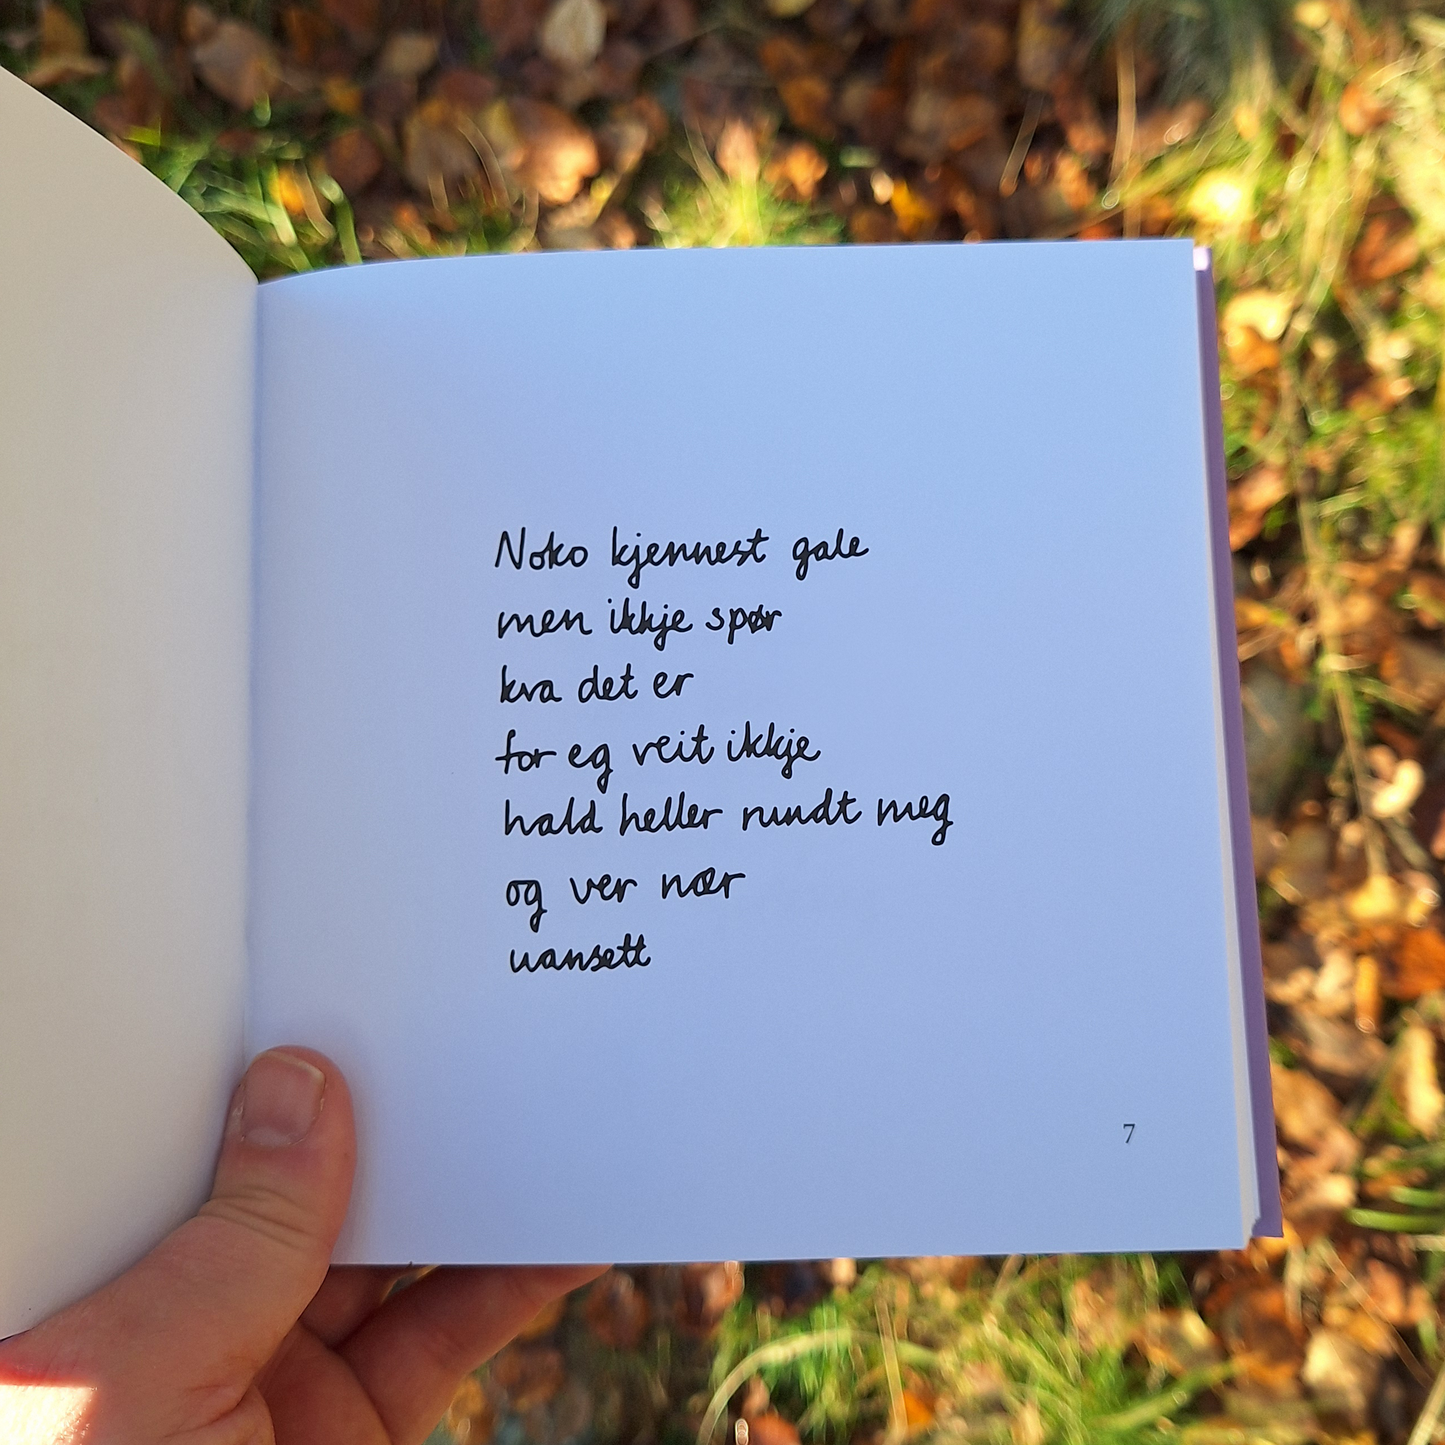 Noko kjennest gale
men ikkje spør
kva det er
for eg veit ikkje
hald heller rundt meg
og ver nær
uansett
7